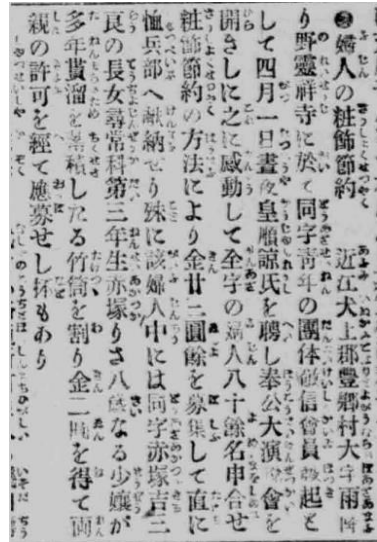 婦人の粧飾節約 近江犬上郡豊郷村大字雨降
り野靈祥寺に於て同字靑年の團体敬信會員發起と
して四月一日晝夜皇願諒氏を聘し奉公大演說會を
開きしに之に感動して全字の婦人八十餘名申合せ
粧飾節約の方法により金廿二圓餘を募集して直に
恤兵部へ献納せり殊に該婦人中には同字赤塚吉三
良の長女尋常科第三年生赤塚りさ八歲なる少孃が
多年貰溜を蓄積したる竹筒を割り金二圓を得て両
親の許可を經て應募せし抔もあり